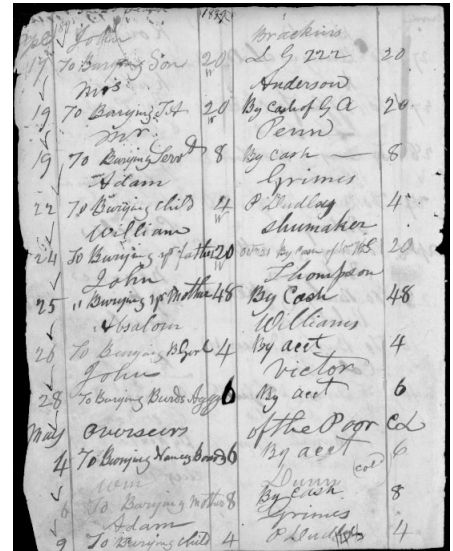 John Brackins
17 To Burying Son 20 L G 222 20
Mrs Anderson
19 To Burying 20 By Cash of G A 20
Mr. Penn
19 To Burying Servt 8 By Cash — 8
Adam Grimes
22 To Burying child 4 P Dudley 4
William Shumaker
24 To Burying yr father 20 By Cash 20
John Thompson
25 " Burying yr Mother 48 By Cash 48
Absalom Williams
26 To Burying 4 By acct 4
John Victor
28 To Burying 6 By act 6
May Overseers of the Poor Cd
4 To Burying Nancy 6 By act 6
Wm Dunn (col)
6 To Burying Mother 8 By Cash. 8
Adam Grimes
9 To Burying child 4 P Dudley 4